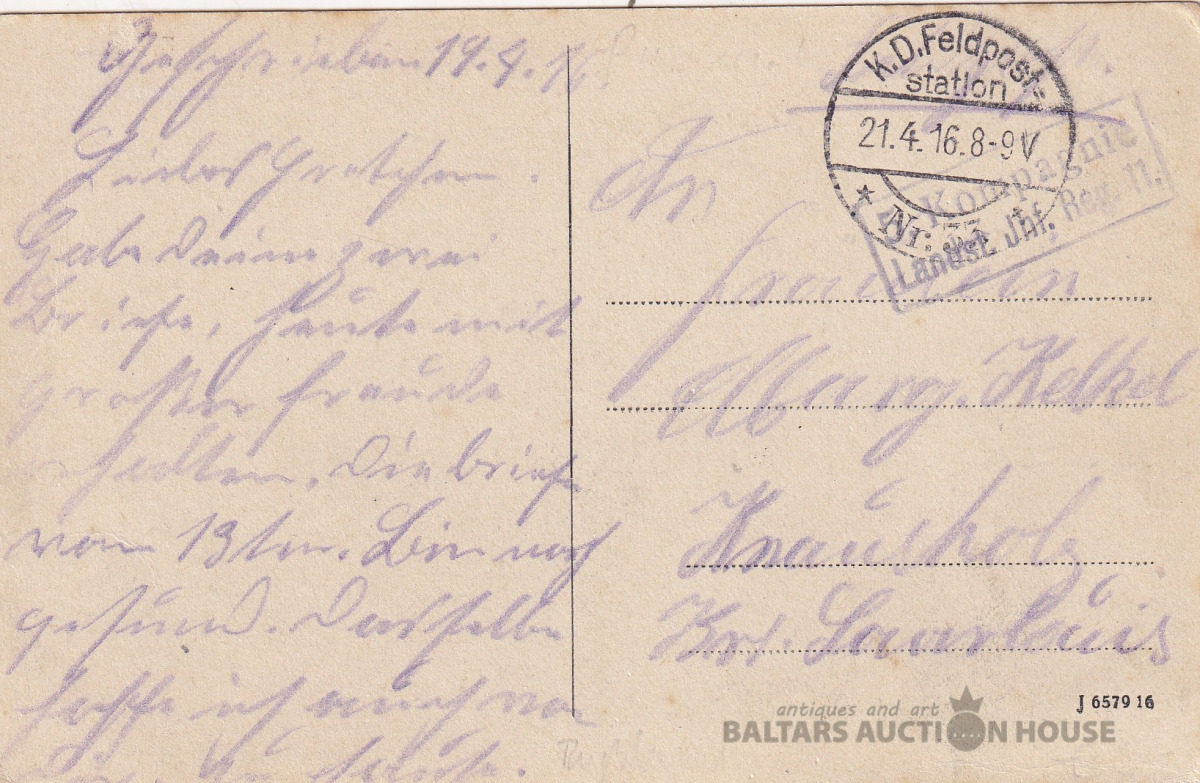 Geschrieben 19.4.16.
Liebes Gretchen.
Habe Deine zwei
Briefe, heute mit
großer Freude
erhalten. Die Briefe
vom 13ten. Bin noch
gesund. Dasselbe
hoffe ich auch von
K.D. Feldpost-
station
21.4.16.8-9V
* Nr. 33 *
5. Kompagnie
Landst. Jnf. Reg. 11.
An
Fräulein
Marg. Kelkel
Knausholz
Krs. Saarlouis
J 6579 16
antiques and art
BALTARS AUCTION HOUSE